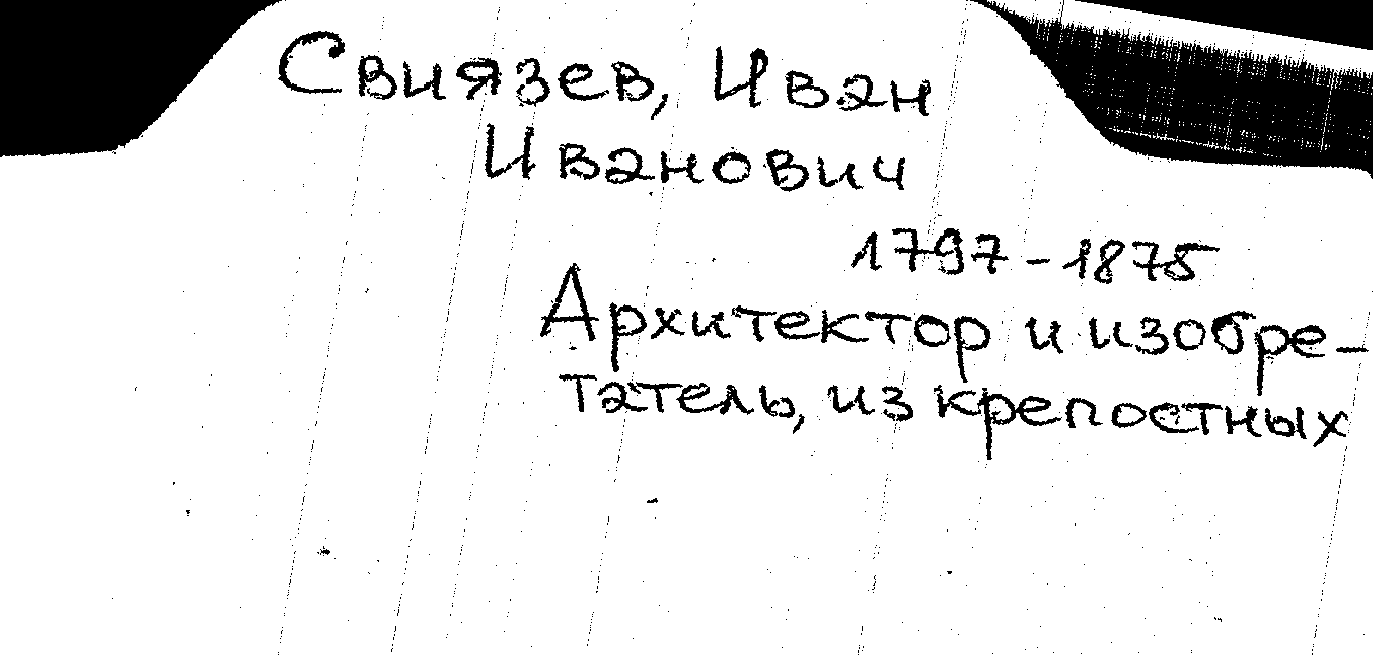 Свиязев, Иван
Иванович
1797-1875
Архитектор и изобре-
татель, из крепостных